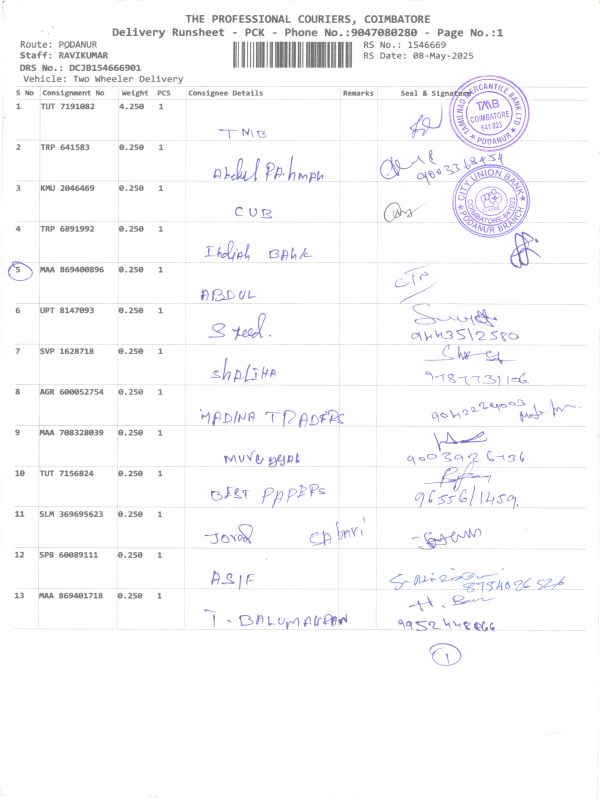 THE PROFESSIONAL COURIERS, COIMBATORE
Delivery Runsheet - PCK - Phone No.:9047080280 - Page No.:1
Route: PODANUR
RS No.: 1546669
Staff: RAVIKUMAR
RS Date: 08-May-2025
DRS No.: DCJB154666901
Vehicle: Two Wheeler Delivery
S No Consignment No Weight PCS Consignee Details Remarks Seal & Signature
1 TUT 7191082 4.250 1
TMB
TAMILNAD MERCANTILE BANK LTD
TMB
COIMBATORE
641 023
PODANUR
2 TRP 641583 0.250 1
Abdul RAhman
3 KMU 2046469 0.250 1
CUB
CITY UNION BANK
COIMBATORE-641023
PODANUR BRANCH
4 TRP 6891992 0.250 1
Indian BANK
5 MAA 869400896 0.250 1
ABDUL
6 UPT 8147093 0.250 1
Syeed.
9443512580
7 SVP 1628718 0.250 1
ShALIHA
9787731106
8 AGR 600052754 0.250 1
MADINA TRADERS
9042224003
9 MAA 708328039 0.250 1
10 TUT 7156824 0.250 1
BEST PAPERS
9655611459.
11 SLM 369695623 0.250 1
12 SPB 60089111 0.250 1
ASIF
8754026526
13 MAA 869401718 0.250 1
T. BALUMAGRAN
1